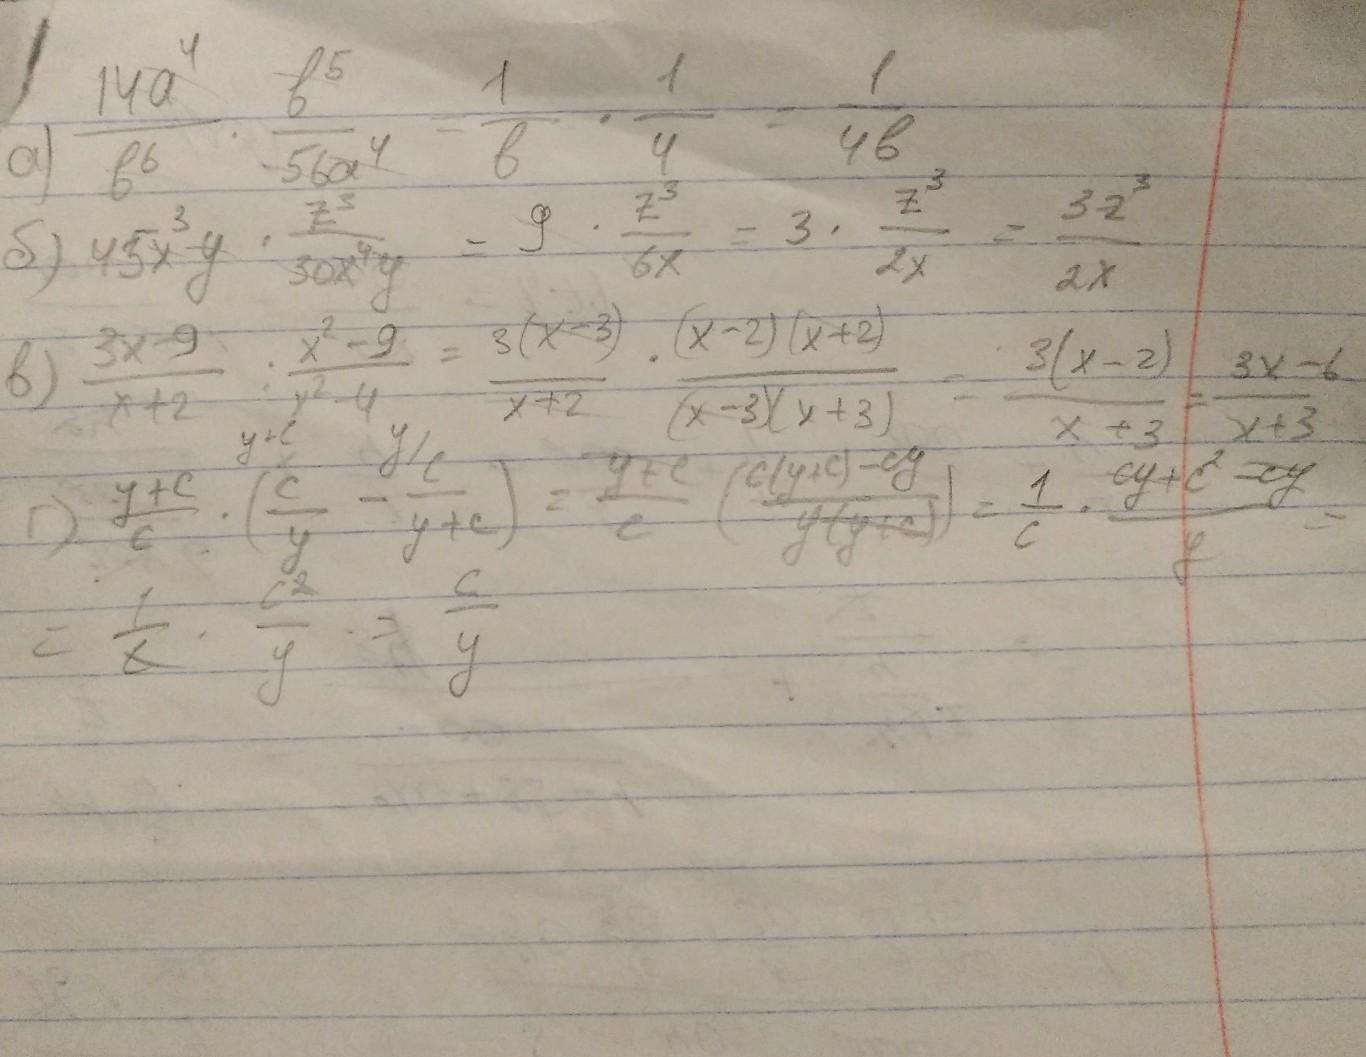 а) 14a⁴/b⁶ · b⁵/56a⁴ = 1/b · 1/4 = 1/4b
б) 45x³y · z³/30x⁴y = 9 · z³/6x = 3 · z³/2x = 3z³/2x
в) 3x-9/x+2 : x²-9/x²-4 = 3(x-3)/x+2 · (x-2)(x+2)/(x-3)(x+3) = 3(x-2)/x+3 = 3x-6/x+3
г) y+c/c · (y+c\ c/y - y/ c/y+c) = y+c/c (c(y+c)-cy/y(y+c)) = 1/c · cy+c²-cy/y =
= 1/c · c²/y = c/y